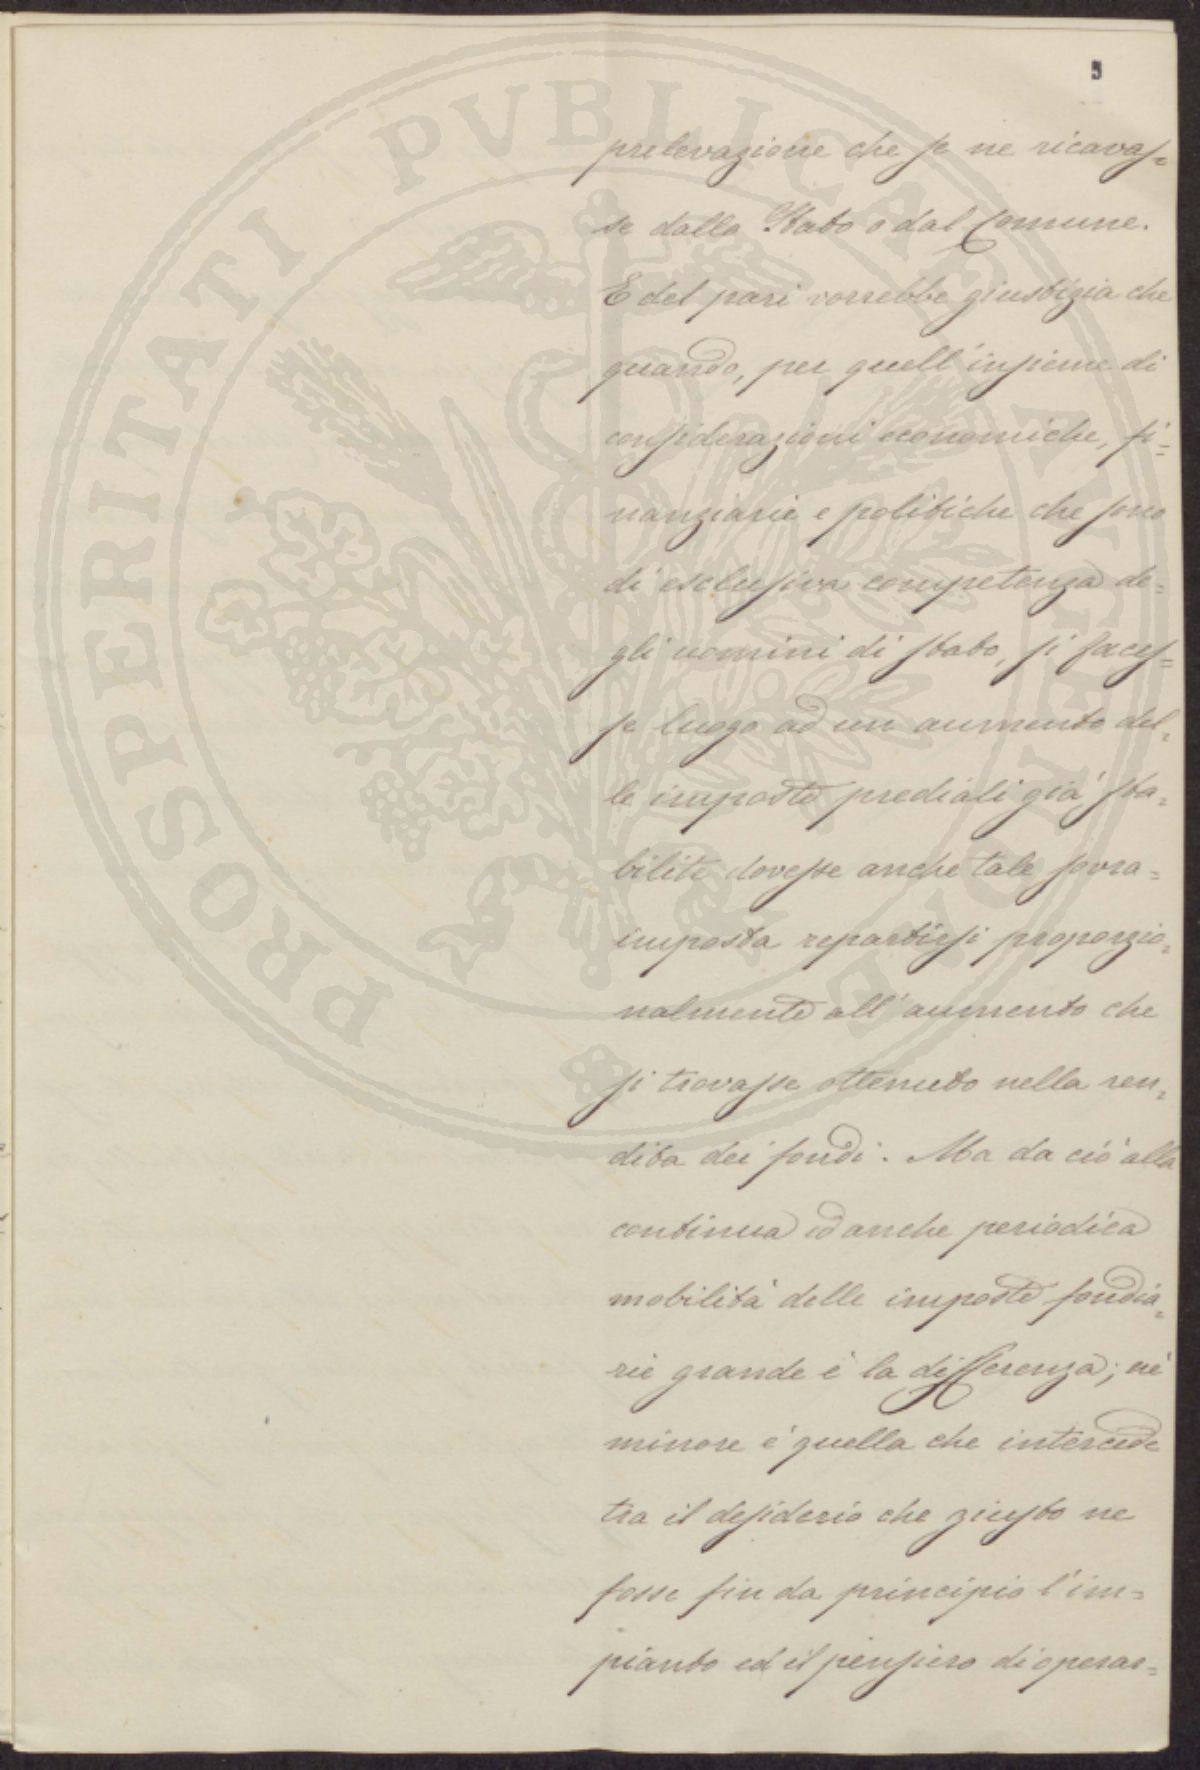 5
PROSPERITATI PVBLICAE AVGENDAE
prelevazione che se ne ricavas=
se dallo Stato o dal Comune.
E del pari vorrebbe giustizia che
quando, per quell'insieme di
considerazioni economiche, fi=
nanziarie e politiche che sono
di esclusiva competenza de=
gli uomini di stato, si faces=
se luogo ad un aumento del=
le imposte prediali già sta=
bilite dovesse anche tale sovra=
imposta repartirsi proporzio=
nalmente all'aumento che
si trovasse ottenuto nella ren=
dita dei fondi. Ma da ciò alla
continua ed anche periodica
mobilità delle imposte fondia=
rie grande è la differenza; nè
minore è quella che intercede
tra il desiderio che giusto ne
fosse fin da principio l'im=
pianto ed il pensiero di operar=